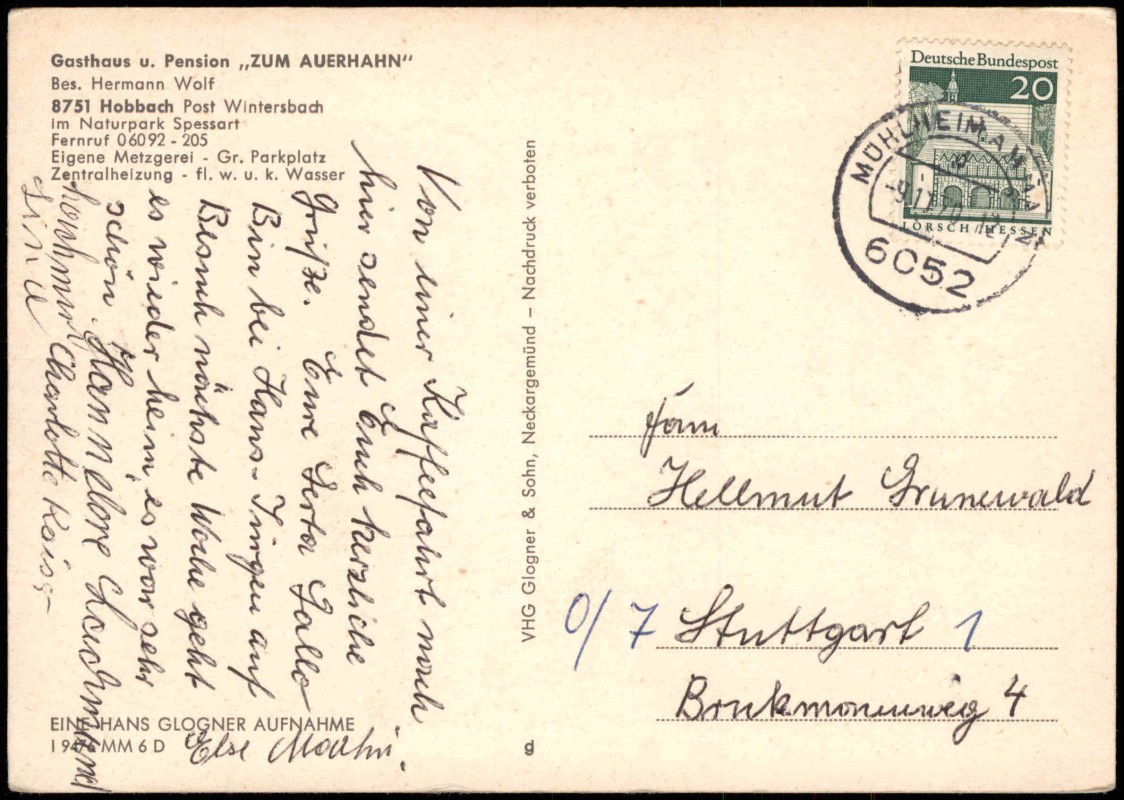 Gasthaus u. Pension „ZUM AUERHAHN“
Bes. Hermann Wolf
8751 Hobbach Post Wintersbach
im Naturpark Spessart
Fernruf 06092 - 205
Eigene Metzgerei - Gr. Parkplatz
Zentralheizung - fl. w. u. k. Wasser
Von einer Kaffeefahrt nach
hier sendet Euch herzliche
Grüße. Eure Gerta Gallo
Bin bei Hans-Jürgen auf
Besuch nächste Woche geht
es wieder heim, es war sehr
schön Hannelore
Charlotte
Else
EINE HANS GLOGNER AUFNAHME
MM 6 D
VHG Glogner & Sohn, Neckargemünd – Nachdruck verboten
g
Deutsche Bundespost
20
LORSCH / HESSEN
MÜHLHEIM AM MAIN
6052
Fam
Hellmut Grunewald
0/7 Stuttgart 1
4